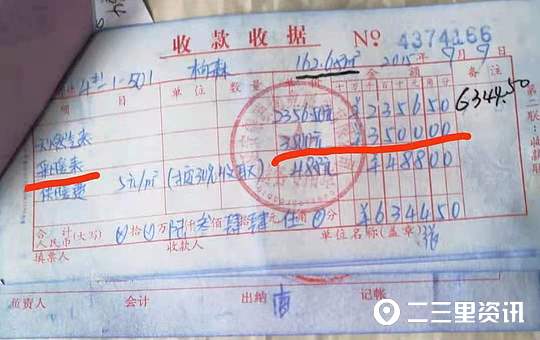 收款收据 № 4374166
4#1-501 柏森 162.65m² 2015年9月9
项 目 单位 数量 单价 金额 备注
天燃气表 2356.50元 ¥235650 6344.50
3500元 ¥350000
供暖费 5元/m² 488元 ¥48800
合计人民币(大写) 0拾0万陆仟叁佰肆拾肆元伍角0分 ¥634450
填票人 收款人 单位名称(盖章)
第二联:收款
负责人 会计 出纳 记帐
二三里资讯